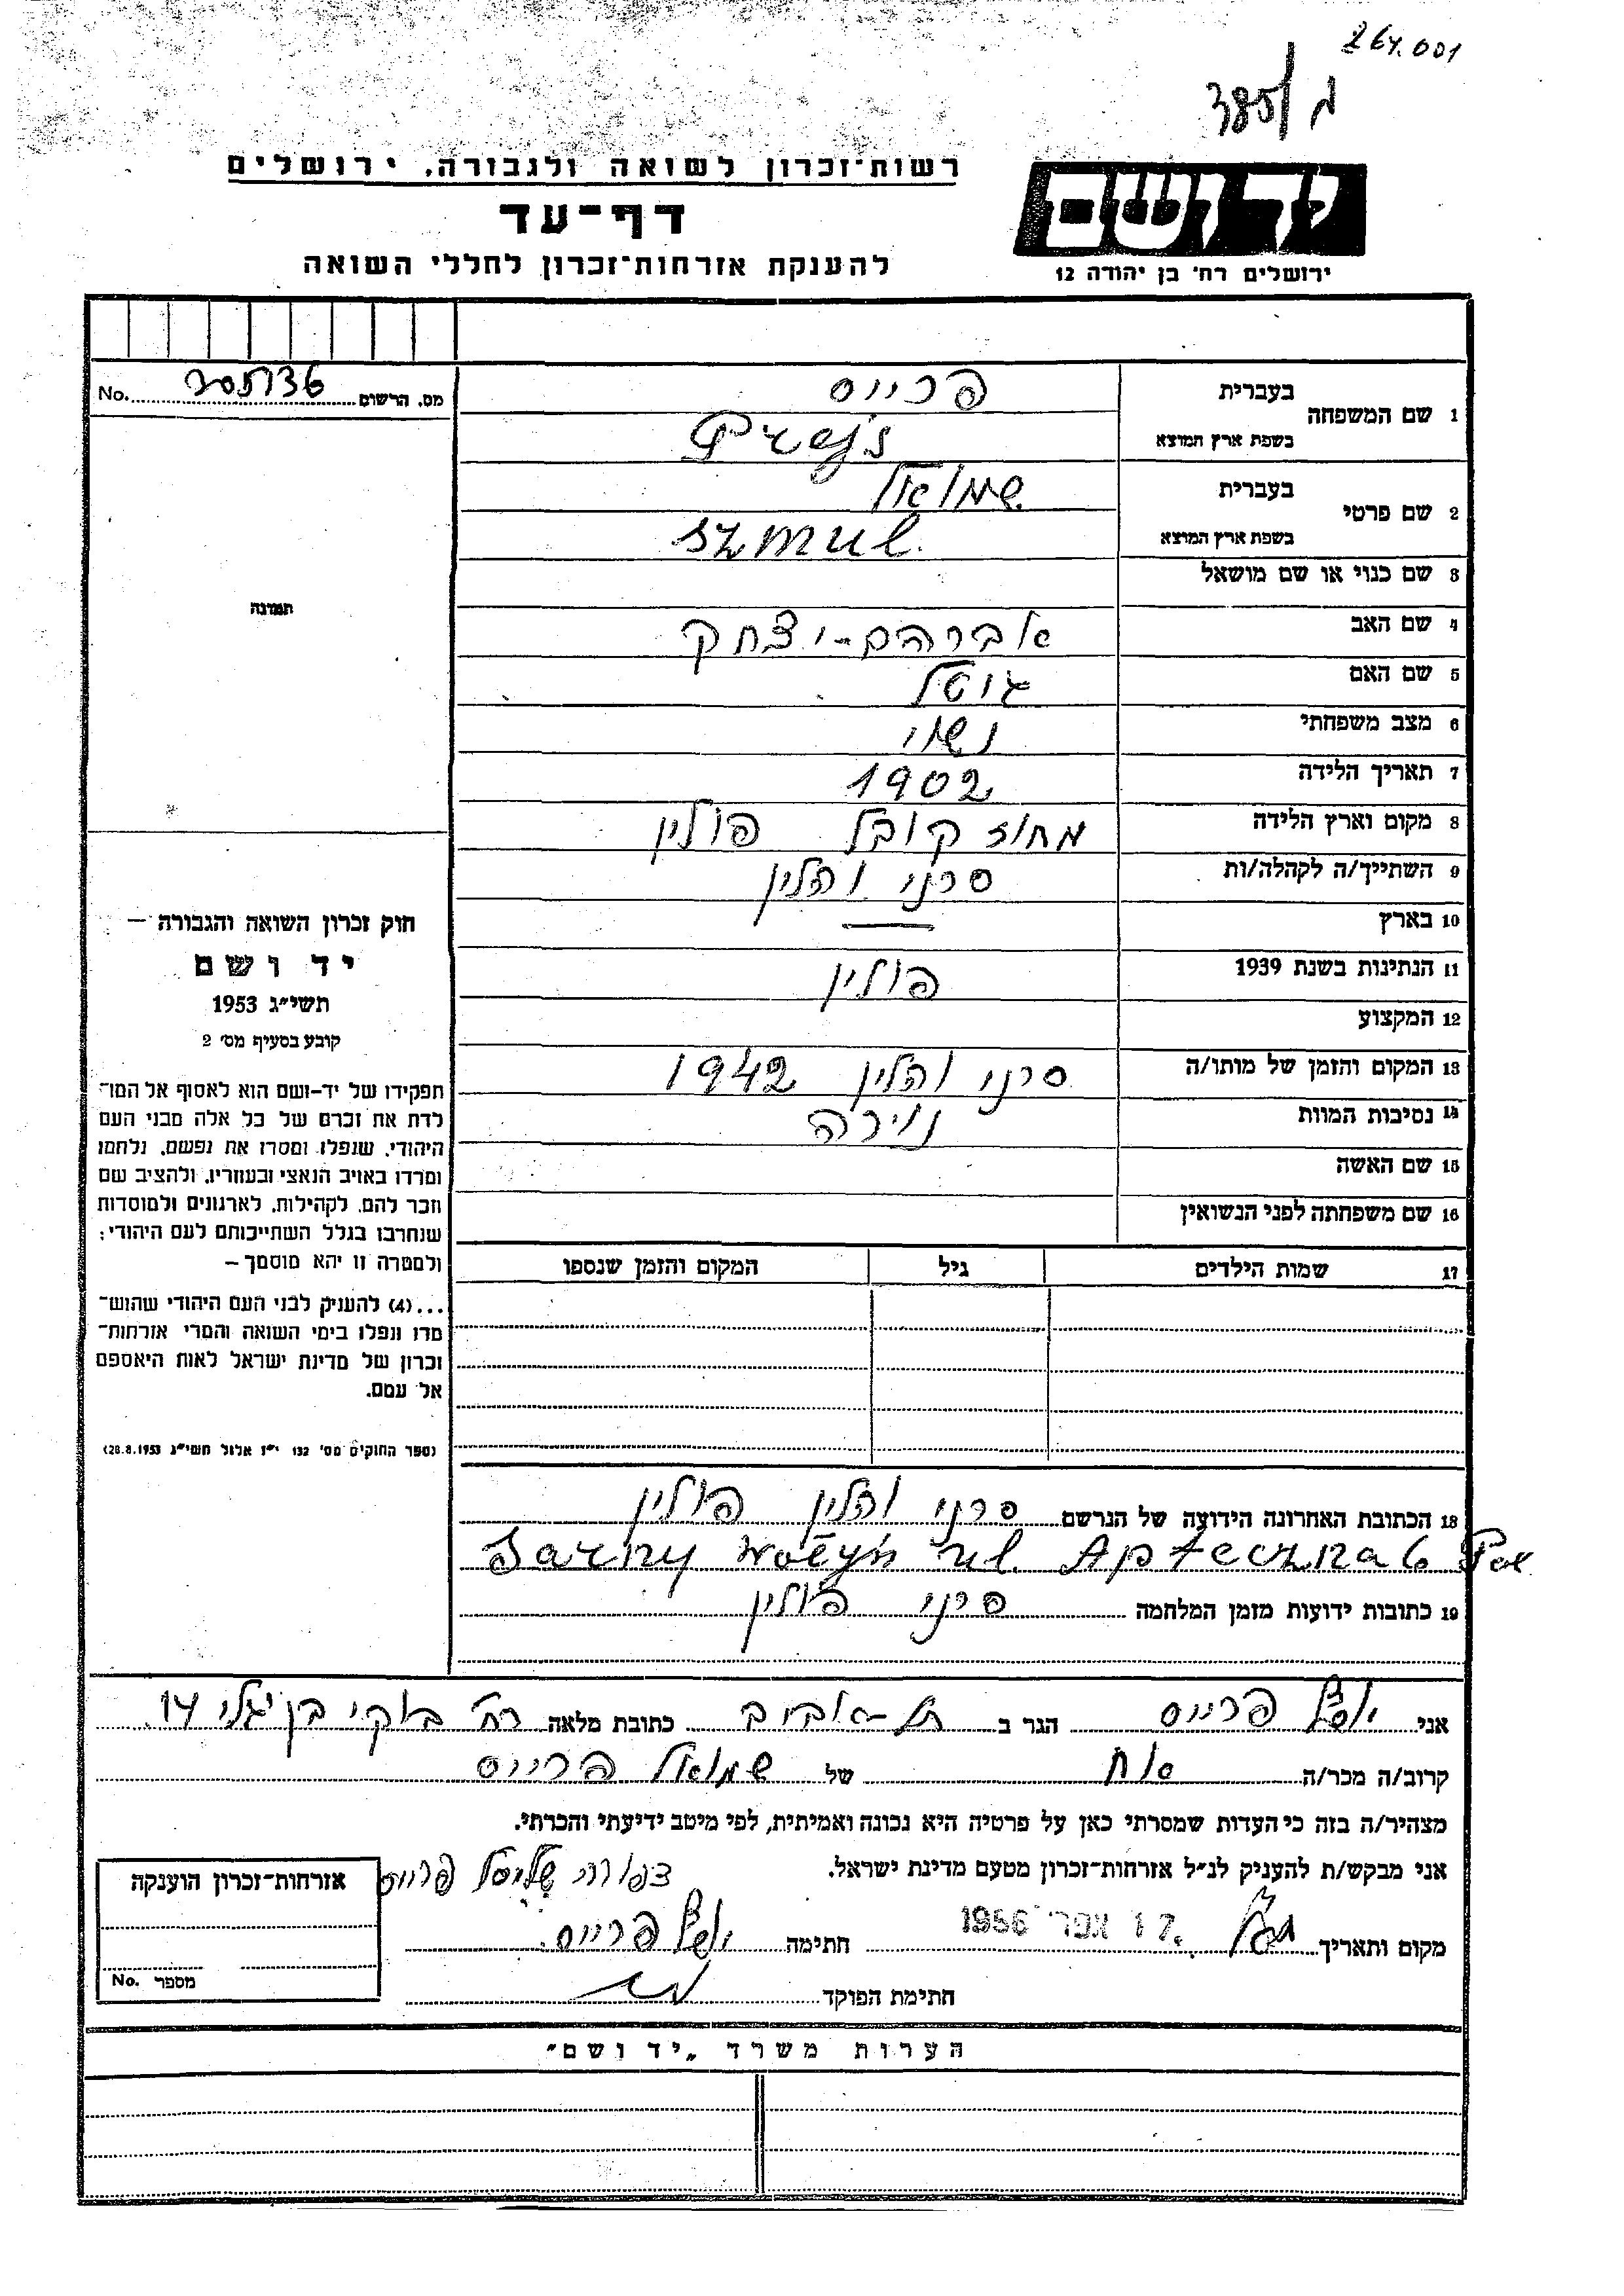 264.001
רשות־זכרון לשואה ולגבורה, ירושלים
דף־עד
להענקת אזרחות־זכרון לחללי השואה
יד ושם
ירושלים רח' בן יהודה 12
No. מס. הרשום
1 שם המשפחה בעברית פרייס
בשפת ארץ המוצא Prejs
2 שם פרטי בעברית שמואל
בשפת ארץ המוצא Szmul
3 שם כנוי או שם מושאל
4 שם האב אברהם-יצחק
5 שם האם גוטל
6 מצב משפחתי נשוי
7 תאריך הלידה 1902
8 מקום וארץ הלידה מחוז קובל פולין
9 השתייך/ה לקהלה/ות סרני ווהלין
10 בארץ —
11 הנתינות בשנת 1939 פולין
12 המקצוע
13 המקום והזמן של מותו/ה סרני ווהלין 1942
14 נסיבות המוות
15 שם האשה
16 שם משפחתה לפני הנשואין
17 שמות הילדים גיל המקום והזמן שנספו
תמונה
חוק זכרון השואה והגבורה —
יד ושם
תשי"ג 1953
קובע בסעיף מס' 2
תפקידו של יד-ושם הוא לאסוף אל המו־
לדת את זכרם של כל אלה מבני העם
היהודי, שנפלו ומסרו את נפשם, נלחמו
ומרדו באויב הנאצי ובעוזריו, ולהציב שם
וזכר להם, לקהילות, לארגונים ולמוסדות
שנחרבו בגלל השתייכותם לעם היהודי;
ולמטרה זו יהא מוסמך —
...(4) להעניק לבני העם היהודי שהוש־
מדו ונפלו בימי השואה והמרי אזרחות־
זכרון של מדינת ישראל לאות היאספם
אל עמם.
(ספר החוקים מס' 132 י"ז אלול תשי"ג 28.8.1953)
18 הכתובת האחרונה הידועה של הנרשם סרני ווהלין פולין
Sarny Wołyń ul. Apteczna 6 Pol
19 כתובות ידועות מזמן המלחמה סרני פולין
אני פרייס הגר ב תל-אביב כתובת מלאה רח' בוקי בן יגלי 14
קרוב/ה מכר/ה אח של שמואל פרייס
מצהיר/ה בזה כי העדות שמסרתי כאן על פרטיה היא נכונה ואמיתית, לפי מיטב ידיעתי והכרתי.
אני מבקש/ת להעניק לנ"ל אזרחות־זכרון מטעם מדינת ישראל.
פרייס
מקום ותאריך 17. אפר' 1956 חתימה פרייס
חתימת הפוקד
אזרחות־זכרון הוענקה
מספר No.
הערות משרד „יד ושם"